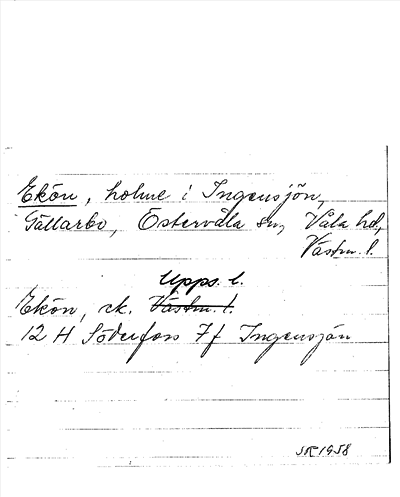 Ekön, holme i Ingensjön,
Gällarbo, Östervåla sn, Våla hd,
Västm. l.
Upps. l.
Ekön, ek. Västm. l.
12 H Söderfors 7f Ingensjön
SK 1958